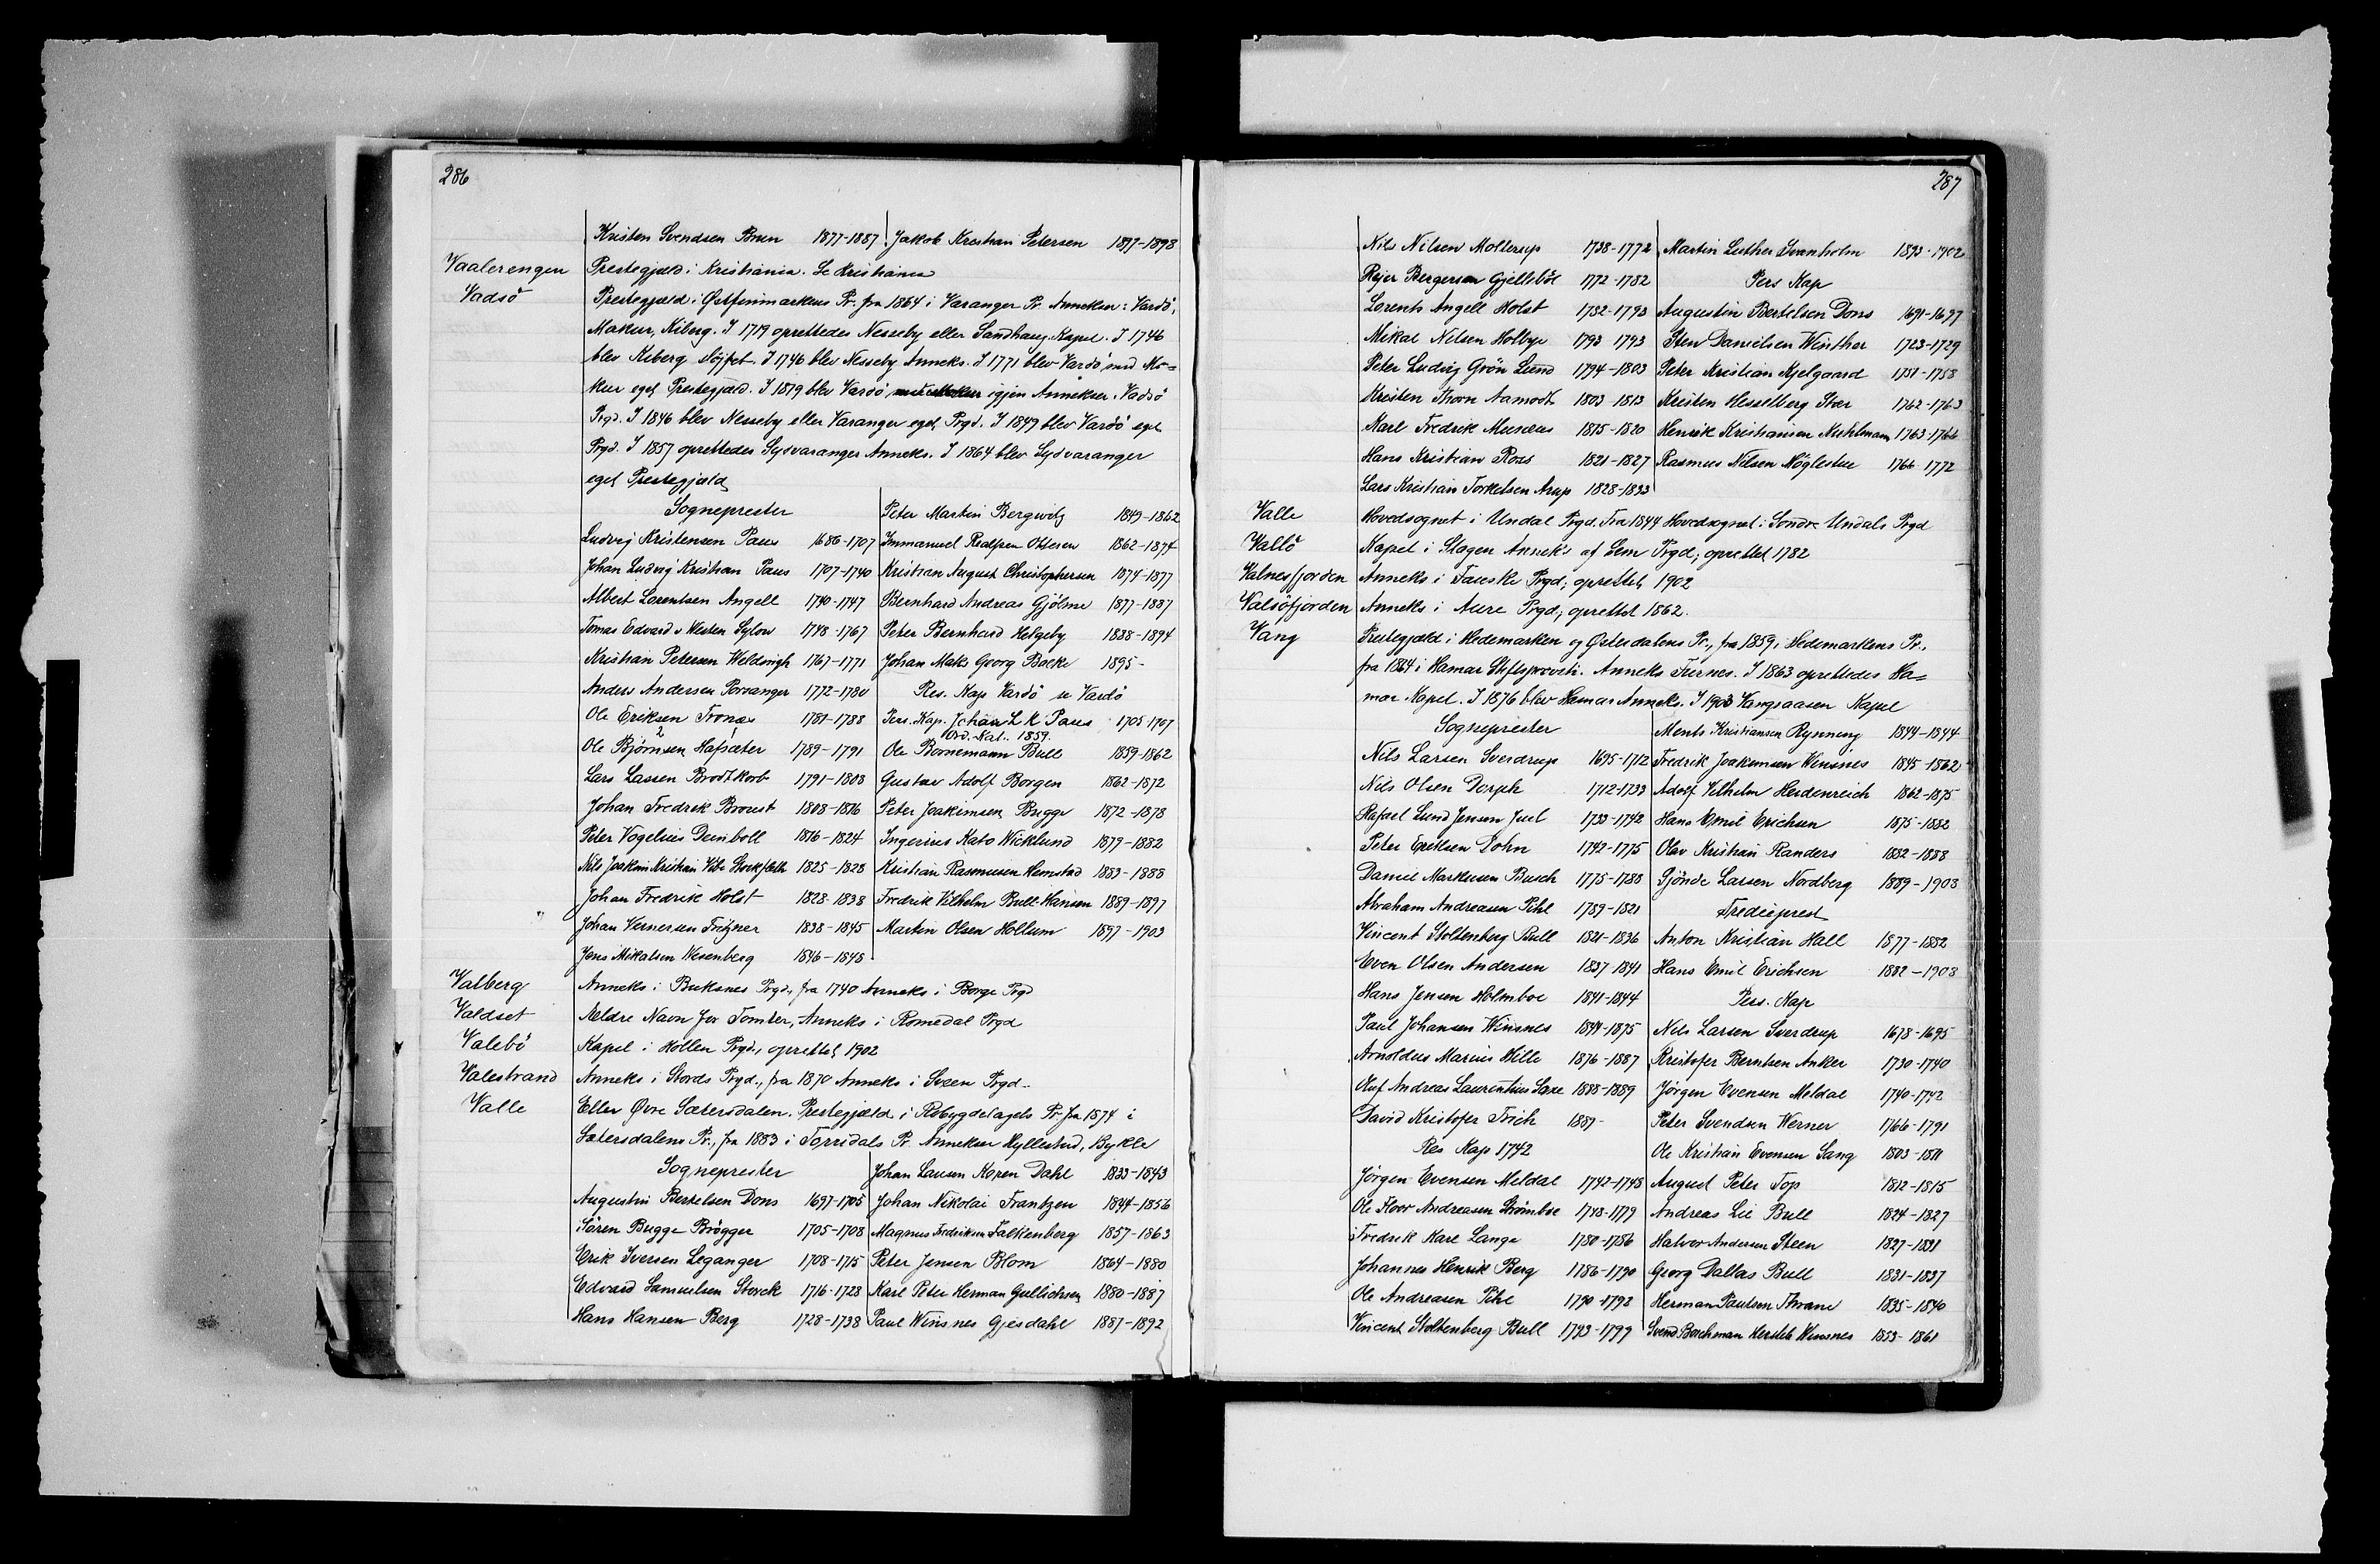 286
Kristen Svendsen Brun 1877-1887 Jakob Kristian Petersen 1897-1898
Vaalerengen Prestegjæld i Kristiania. Se Kristiania
Vadsö Prestegjæld i Østfinmarkens Pr. fra 1864 i Varanger Pr. Annekser: Vardö,
Makur, Kiberg. I 1719 oprettedes Nesseby eller Sandhaug Kapel. I 1746
blev Kiberg slöjfet. I 1746 blev Nesseby Anneks. I 1771 blev Vardö med Ma=
kur eget Prestegjæld. I 1819 blev Vardö igjen Annekser i Vadsö
Prgd. I 1846 blev Nesseby eller Varanger eget Prgd. I 1849 blev Vardö eget
Prgd. I 1857 oprettedes Sydvaranger Anneks. I 1864 blev Sydvaranger
eget Prestegjæld
Sogneprester
Ludvig Kristensen Paus 1686-1707
Johan Ludvig Kristian Paus 1707-1740
Albert Lorentsen Angell 1740-1747
Tomas Edvard v Westen Sylow 1748-1767
Kristian Petersen Weldingh 1767-1771
Anders Andersen Porsanger 1772-1780
Ole Eriksen Tronæs 1781-1788
Ole Björnsen Hafsæter 1789-1791
Lars Lassen Brodtkorb 1791-1808
Johan Fredrik Broust 1808-1816
Peter Vogelius Deinboll 1816-1824
Nils Joakim Kristian Vibe Stockfleth 1825-1828
Johan Fredrik Holst 1828-1838
Johan Vernersen Fritzner 1838-1845
Jens Mikalsen Wesenberg 1846-1848
Peter Martin Bergwitz 1849-1862
Immanuel Realfsen Ottesen 1862-1874
Kristian August Christophersen 1874-1877
Bernhard Andreas Gjölme 1877-1887
Peter Bernhard Helgeby 1888-1894
Johan Maks Georg Bocke 1895-
Res. Kap Vardö se Vardö
Pers. Kap. Johan L K Paus 1705-1707
Ord. Kat. 1859.
Ole Bornemann Bull 1859-1862
Gustav Adolf Borgen 1862-1872
Peter Joakimsen Bugge 1872-1878
Ingerius Kato Wicklund 1879-1882
Kristian Rasmussen Hemstad 1883-1888
Fredrik Vilhelm Bull-Hansen 1889-1897
Martin Olsen Hollum 1897-1903
Valberg Anneks i Buksnes Prgd., fra 1740 Anneks i Borge Prgd
Valdset Ældre Navn for Tomter, Anneks i Romedal Prgd
Valebö Kapel i Hollen Prgd., oprettet 1902
Valestrand Anneks i Stords Prgd., fra 1870 Anneks i Sveen Prgd.
Valle Eller Øvre Sætersdalen. Prestegjæld i Robygdelagets Pr. fra 1874 i
Sætersdalens Pr., fra 1883 i Torridals Pr. Annekser Hyllestad, Bykle
Sogneprester
Augustin Bertelsen Dons 1697-1705
Sören Bugge Brögger 1705-1708
Erik Iversen Leganger 1708-1715
Edvard Samuelsen Storck 1716-1728
Hans Hansen Berg 1728-1738
Johan Lausen Koren Dahl 1833-1843
Johan Nikolai Frantzen 1844-1856
Magnus Fredriksen Falkenberg 1857-1863
Peter Jensen Blom 1864-1880
Karl Peter Herman Gullichsen 1880-1887
Paul Winsnes Gjesdahl 1887-1892
287
Nils Nilsen Mollerup 1738-1772
Rejer Bergersen Gjelleböl 1772-1782
Lorents Angell Holst 1782-1793
Mikal Nilsen Holbye 1793 1793
Peter Ludvig Grön Lund 1794-1803
Kristen Thorn Aamodt 1803-1813
Karl Fredrik Musæus 1815-1820
Hans Kristian Roes 1821-1827
Lars Kristian Torkelsen Arup 1828-1833
Martin Luther Svanholm 1893-1902
Pers Kap
Augustin Bertelsen Dons 1691-1697
Sten Danielsen Winther 1723-1729
Peter Kristian Kjelgaard 1751-1758
Kristen Hesselberg Stær 1762-1763
Henrik Kristiansen Muhlmann 1763-1766
Rasmus Nilsen Nöglestue 1766-1772
Valle Hovedsognet i Undal Prgd. Fra 1844 Hovedsognet i Sondre Undals Prgd
Vallö Kapel i Slagen Anneks af Sem Prgd; oprettet 1782
Valnesfjorden Anneks i Fauske Prgd; oprettet 1902
Valsöfjorden Anneks i Aure Prgd; oprettet 1862.
Vang Prestegjæld i Hedemarken og Østerdalens Pr., fra 1859 i Hedemarkens Pr.,
fra 1864 i Hamar Stiftsprovsti. Anneks Furnes. I 1863 oprettedes Ha=
mar Kapel. I 1876 blev Hamar Anneks. I 1903 Vangsaasen Kapel
Sogneprester
Nils Larsen Sverdrup 1695-1712
Nils Olsen Dorph 1712-1733
Rafael Lund Jensen Juel 1733-1742
Peter Ertlsen Dohn 1742-1775
Daniel Markusen Busch 1775-1788
Abraham Andreasen Pihl 1789-1821
Vincent Stoltenberg Bull 1821-1836
Even Olsen Andersen 1837-1841
Hans Jensen Holmboe 1841-1844
Paul Johansen Winsnes 1844-1875
Arnoldus Marius Hille 1876-1887
Oluf Andreas Laurentius Saxe 1888-1889
David Kristofer Frich 1889-
Res Kap 1742
Jörgen Evensen Meldal 1742-1748
Ole Floor Andreasen Strömboe 1748-1779
Fredrik Karl Lange 1780-1786
Johannes Henrik Berg 1786-1790
Ole Andreasen Pihl 1790-1793
Vincent Stoltenberg Bull 1793-1799
Ments Kristiansen Rynning 1844-1844
Fredrik Joakimsen Winsnes 1845-1862
Adolf Vilhelm Heidenreich 1862-1875
Hans Emil Erichsen 1875-1882
Olav Kristian Randers 1882-1888
Sjönde Larsen Nordberg 1889-1903
Tredieprest
Anton Kristian Hall 1877-1882
Hans Emil Erichsen 1882-1903
Pers. Kap
Nils Larsen Sverdrup 1678-1695
Kristofer Berntsen Anker 1730-1740
Jörgen Evensen Meldal 1740-1742
Peter Svendsen Werner 1766-1791
Ole Kristian Evensen Sang 1803-1811
August Peter Top 1812-1815
Andreas Lie Bull 1824-1827
Halvor Andersen Steen 1827-1831
Georg Dallas Bull 1831-1837
Herman Paulsen Thrane 1835-1840
Svend Borchman Hersleb Winsnes 1853-1861